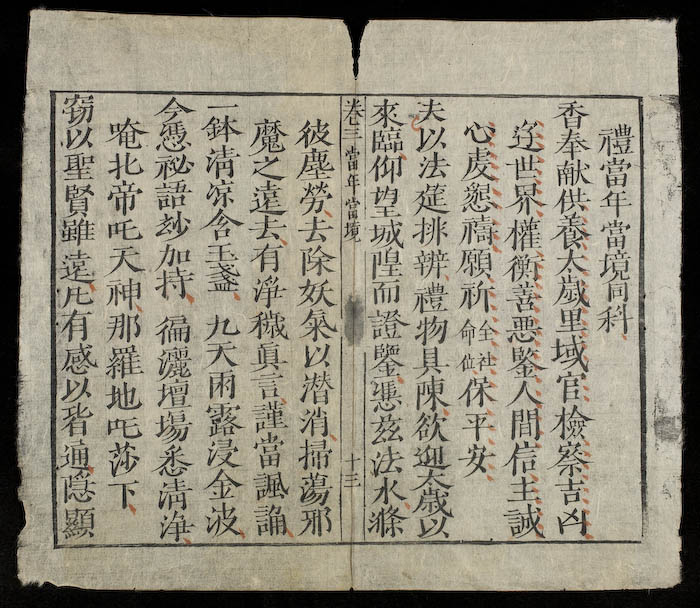 禮當年當境同科
香奉献供養太歲里域官檢察吉凶
世界權衡善惡鑒人間信主誠
心虔懇禱願祈全社命位保平安
夫以法筵排辨禮物具陳欲迎太歲以
來臨仰望城隍而證鑒憑兹法水滌
卷三 當年當境 十三
彼塵勞去除妖氣以潜消掃蕩邪
魔之遠去有淨穢真言謹當諷誦
一鉢清凉含玉盞 九天雨露浸金波
今憑祕語玅加持 徧灑壇場悉清淨
唵北帝吒天神那羅地吒莎下
窃以聖賢雖遠凡有感以皆通隱顯